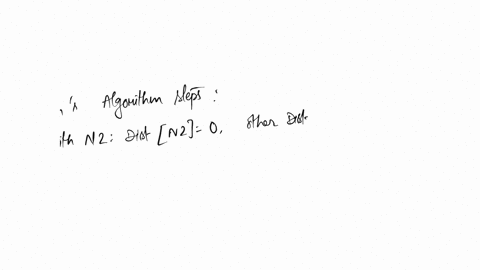 's Algorithm steps :
ith N2: Dist [N2]= 0, other Dist